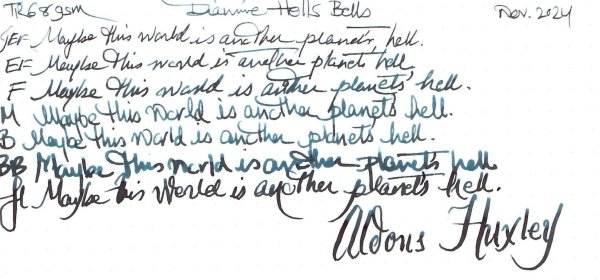 TR68gsm Diamine Hells Bells Nov. 2024
EF Maybe this world is another planets hell.
EF Maybe this world is another planet hell
F Maybe this world is another planets' hell.
M Maybe this world is another planets hell.
B Maybe this world is another planets hell.
BB Maybe this world is another planets hell
fl Maybe this World is another planet's hell.
Aldous Huxley